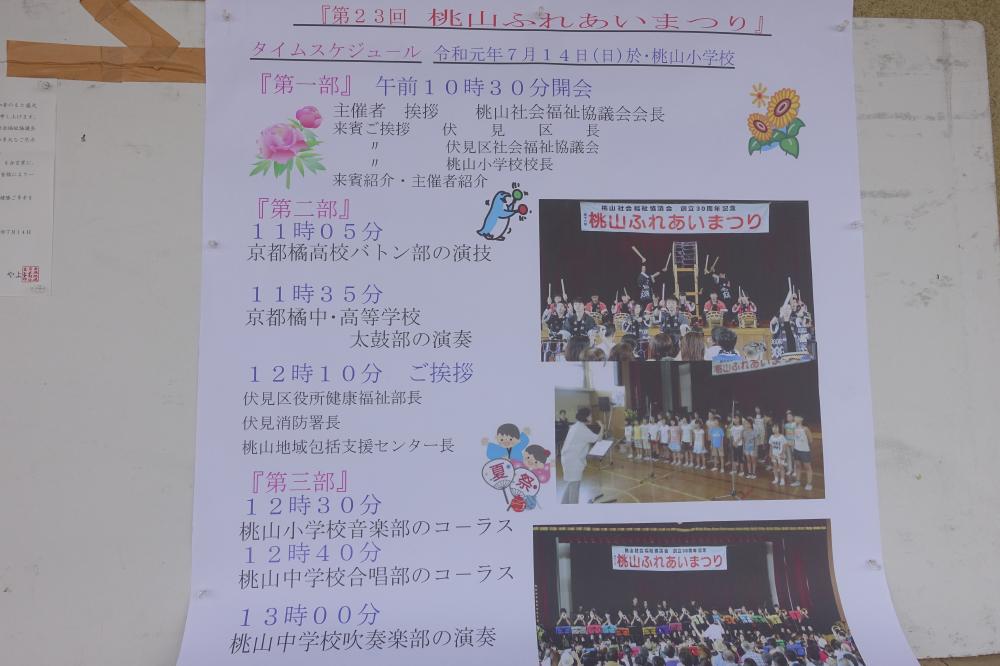 『第23回 桃山ふれあいまつり』
タイムスケジュール 令和元年7月14日(日)於・桃山小学校
『第一部』 午前10時30分開会
主催者 挨拶 桃山社会福祉協議会会長
来賓ご挨拶 伏見区長
〃 伏見区社会福祉協議会
〃 桃山小学校校長
来賓紹介・主催者紹介
『第二部』
11時05分
京都橘高校バトン部の演技
11時35分
京都橘中・高等学校
太鼓部の演奏
12時10分 ご挨拶
伏見区役所健康福祉部長
伏見消防署長
桃山地域包括支援センター長
『第三部』
12時30分
桃山小学校音楽部のコーラス
12時40分
桃山中学校合唱部のコーラス
13時00分
桃山中学校吹奏楽部の演奏
夏祭
桃山社会福祉協議会 創立30周年記念
桃山ふれあいまつり
桃山ふれあいまつり
桃山社会福祉協議会 創立30周年記念
桃山ふれあいまつり
年7月14日